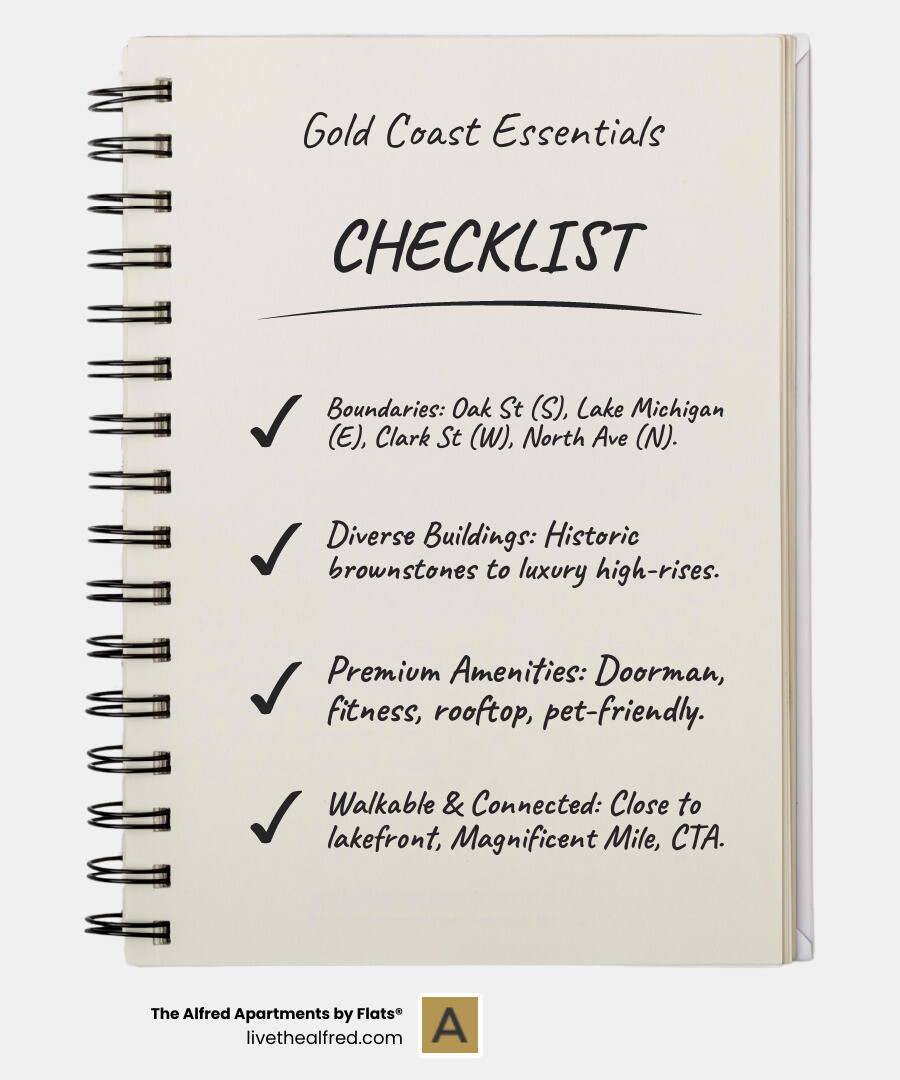 Gold Coast Essentials
CHECKLIST
Boundaries: Oak St (S), Lake Michigan
(E), Clark St (W), North Ave (N).
Diverse Buildings: Historic
brownstones to luxury high-rises.
Premium Amenities: Doorman,
fitness, rooftop, pet-friendly.
Walkable & Connected: Close to
lakefront, Magnificent Mile, CTA.
The Alfred Apartments by Flats®
livethealfred.com
A